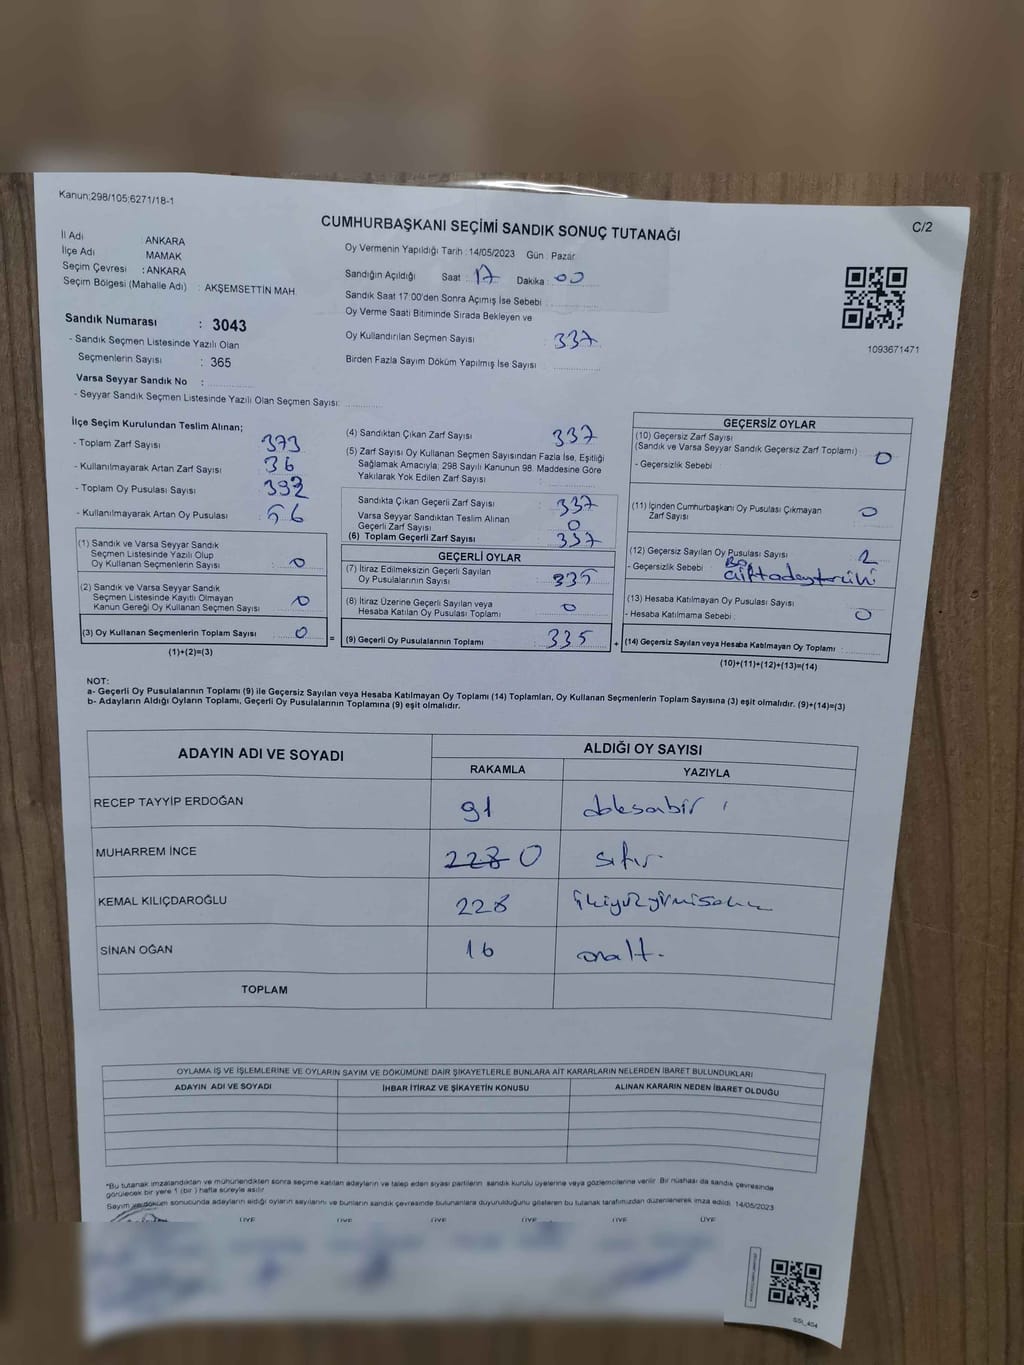 Kanun;298/105;6271/18-1
CUMHURBAŞKANI SEÇİMİ SANDIK SONUÇ TUTANAĞI
C/2
İl Adı : ANKARA
İlçe Adı : MAMAK
Seçim Çevresi : ANKARA
Seçim Bölgesi (Mahalle Adı) : AKŞEMSETTİN MAH.
Oy Vermenin Yapıldığı Tarih :14/05/2023 Gün : Pazar
Sandığın Açıldığı Saat : 17 Dakika : 00
Sandık Saat 17:00'den Sonra Açımış İse Sebebi :
Oy Verme Saati Bitiminde Sırada Bekleyen ve
Oy Kullandırılan Seçmen Sayısı : 337
Birden Fazla Sayım Döküm Yapılmış İse Sayısı :
1093671471
Sandık Numarası : 3043
- Sandık Seçmen Listesinde Yazılı Olan
Seçmenlerin Sayısı : 365
Varsa Seyyar Sandık No :
- Seyyar Sandık Seçmen Listesinde Yazılı Olan Seçmen Sayısı:
İlçe Seçim Kurulundan Teslim Alınan;
- Toplam Zarf Sayısı : 373
- Kullanılmayarak Artan Zarf Sayısı : 36
- Toplam Oy Pusulası Sayısı : 392
- Kullanılmayarak Artan Oy Pusulası : 56
(1) Sandık ve Varsa Seyyar Sandık
Seçmen Listesinde Yazılı Olup
Oy Kullanan Seçmenlerin Sayısı : 0
(2) Sandık ve Varsa Seyyar Sandık
Seçmen Listesinde Kayıtlı Olmayan
Kanun Gereği Oy Kullanan Seçmen Sayısı : 0
(3) Oy Kullanan Seçmenlerin Toplam Sayısı : 0 =
(1)+(2)=(3)
(4) Sandıktan Çıkan Zarf Sayısı : 337
(5) Zarf Sayısı Oy Kullanan Seçmen Sayısından Fazla İse, Eşitliği
Sağlamak Amacıyla; 298 Sayılı Kanunun 98. Maddesine Göre
Yakılarak Yok Edilen Zarf Sayısı :
Sandıkta Çıkan Geçerli Zarf Sayısı : 337
Varsa Seyyar Sandıktan Teslim Alınan
Geçerli Zarf Sayısı : 0
(6) Toplam Geçerli Zarf Sayısı : 337
GEÇERLİ OYLAR
(7) İtiraz Edilmeksizin Geçerli Sayılan
Oy Pusulalarının Sayısı : 335
(8) İtiraz Üzerine Geçerli Sayılan veya
Hesaba Katılan Oy Pusulası Toplamı : 0
(9) Geçerli Oy Pusulalarının Toplamı : 335 +
GEÇERSİZ OYLAR
(10) Geçersiz Zarf Sayısı
(Sandık ve Varsa Seyyar Sandık Geçersiz Zarf Toplamı) : 0
- Geçersizlik Sebebi :
(11) İçinden Cumhurbaşkanı Oy Pusulası Çıkmayan
Zarf Sayısı : 0
(12) Geçersiz Sayılan Oy Pusulası Sayısı : 2
- Geçersizlik Sebebi :
(13) Hesaba Katılmayan Oy Pusulası Sayısı
- Hesaba Katılmama Sebebi : 0
(14) Geçersiz Sayılan veya Hesaba Katılmayan Oy Toplamı :
(10)+(11)+(12)+(13)=(14)
NOT:
a- Geçerli Oy Pusulalarının Toplamı (9) ile Geçersiz Sayılan veya Hesaba Katılmayan Oy Toplamı (14) Toplamları, Oy Kullanan Seçmenlerin Toplam Sayısına (3) eşit olmalıdır. (9)+(14)=(3)
b- Adayların Aldığı Oyların Toplamı, Geçerli Oy Pusulalarının Toplamına (9) eşit olmalıdır.
ADAYIN ADI VE SOYADI ALDIĞI OY SAYISI
RAKAMLA YAZIYLA
RECEP TAYYİP ERDOĞAN 91 doksanbir
MUHARREM İNCE 228 0 sıfır
KEMAL KILIÇDAROĞLU 228 ikiyüzyirmisekiz
SİNAN OĞAN 16 onaltı
TOPLAM
OYLAMA İŞ VE İŞLEMLERİNE VE OYLARIN SAYIM VE DÖKÜMÜNE DAİR ŞİKAYETLERLE BUNLARA AİT KARARLARIN NELERDEN İBARET BULUNDUKLARI
ADAYIN ADI VE SOYADI İHBAR İTİRAZ VE ŞİKAYETİN KONUSU ALINAN KARARIN NEDEN İBARET OLDUĞU
*Bu tutanak imzalandıktan ve mühürlendikten sonra seçime katılan adayların ve talep eden siyasi partilerin sandık kurulu üyelerine veya gözlemcilerine verilir. Bir nüshası da sandık çevresinde
görülecek bir yere 1 (bir ) hafta süreyle asılır.
Sayım ve döküm sonucunda adayların aldığı oyların sayılarını ve bunların sandık çevresinde bulunanlara duyurulduğunu gösteren bu tutanak tarafımızdan düzenlenerek imza edildi. 14/05/2023
ÜYE ÜYE ÜYE ÜYE ÜYE ÜYE